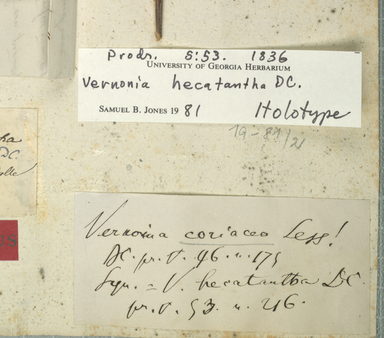 Prodr. 5:53. 1836
UNIVERSITY OF GEORGIA HERBARIUM
Vernonia hecatantha DC.
SAMUEL B. JONES 1981 Holotype
19-81/21
ha
DC.
Vernonia coriacea Less!
DC. pr. 5. 46. n. 175
Syn. = V. hecatantha DC
pr. 5. 53. n. 216.